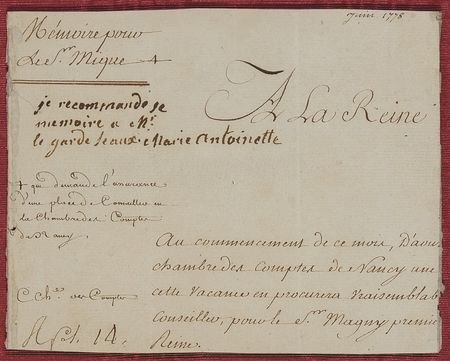 Juin 1778
Mémoire pour
Le Sr. Mique +
A La Reine
je recommande se
memoire a Mr.
le garde seaux. Marie Antoinette
+ qui demande l'assurance
d'une place de Conseiller en
la Chambre des Comptes
de Nancy
Au commencement de ce mois, D'aou
chambre des Comptes de Nancy une
cette Vacance en procurera vraisemblab
Conseiller, pour le Sr. Magny premie
Reine.
C Chs. des Comptes
14.